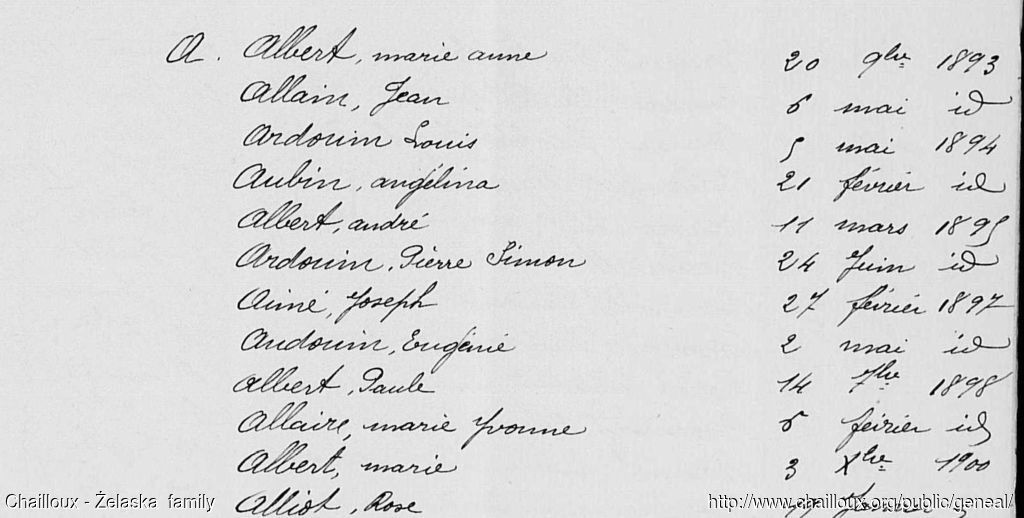 A. Albert, marie anne 20 9bre 1893
Allain, Jean 6 mai id
Ardouin Louis 5 mai 1894
Aubin, angélina 21 février id
Albert, andré 11 mars 1895
Ardouin, Pierre Simon 24 Juin id
Aimé, Joseph 27 février 1897
Audouin, Eugénie 2 mai id
Albert, Paule 14 7bre 1898
Allaire, marie Yvonne 6 février id
Albert, marie 3 Xbre 1900
Alliot, Rose
Chailloux - Żelaska family http://www.chailloux.org/public/geneal/